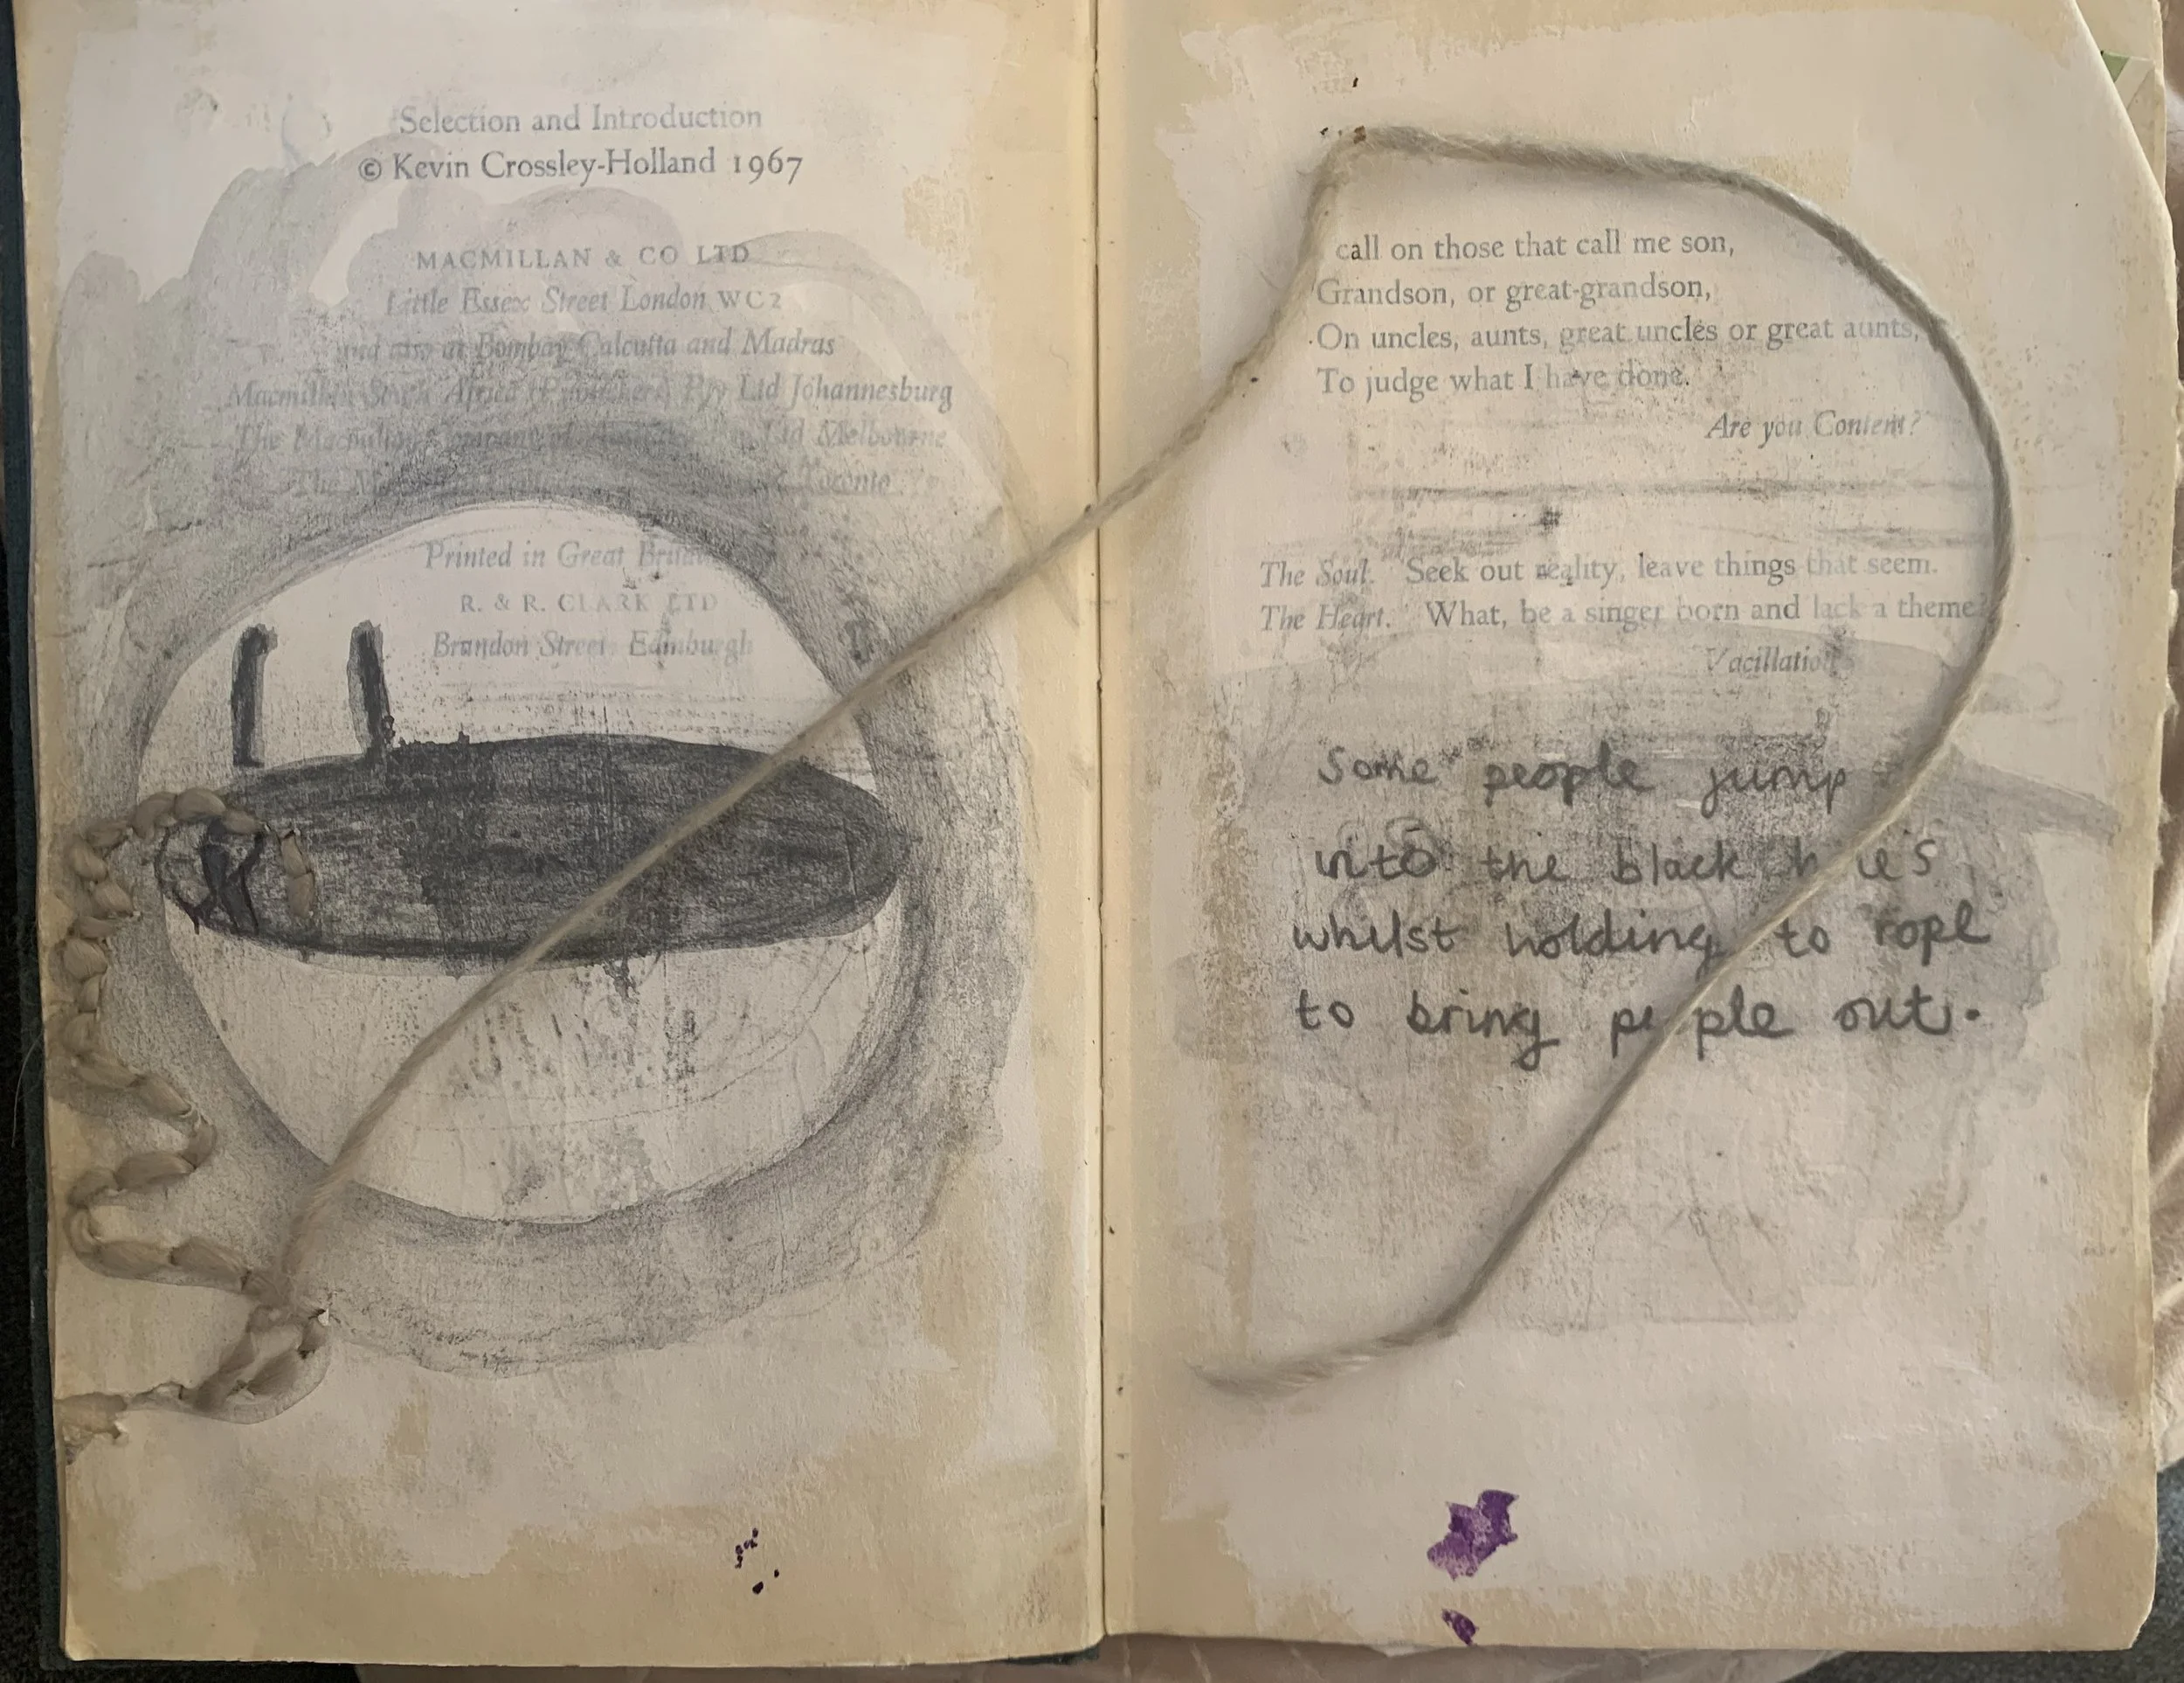 Selection and Introduction
© Kevin Crossley-Holland 1967
MACMILLAN & CO LTD
Little Essex Street London WC2
and also at Bombay Calcutta and Madras
Macmillan South Africa (Publishers) Pty Ltd Johannesburg
The Macmillan Company of Ltd Melbourne
The Toronto
Printed in Great Britain
R. & R. CLARK LTD
Brandon Street Edinburgh
call on those that call me son,
Grandson, or great-grandson,
On uncles, aunts, great uncles or great aunts,
To judge what I have done.
Are you Content?
The Soul. Seek out reality, leave things that seem.
The Heart. What, be a singer born and lack a theme?
Vacillation
Some people jump
into the black holes
whilst holding to rope
to bring people out.